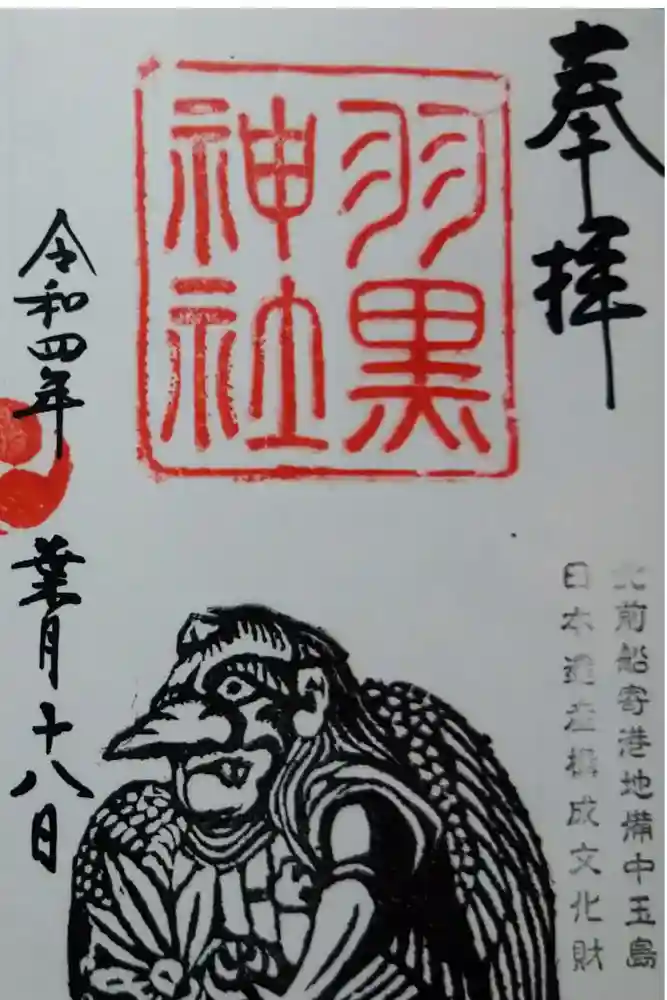 奉拝
羽黒
神社
北前船寄港地備中玉島
日本遺産構成文化財
令和四年
葉月十八日